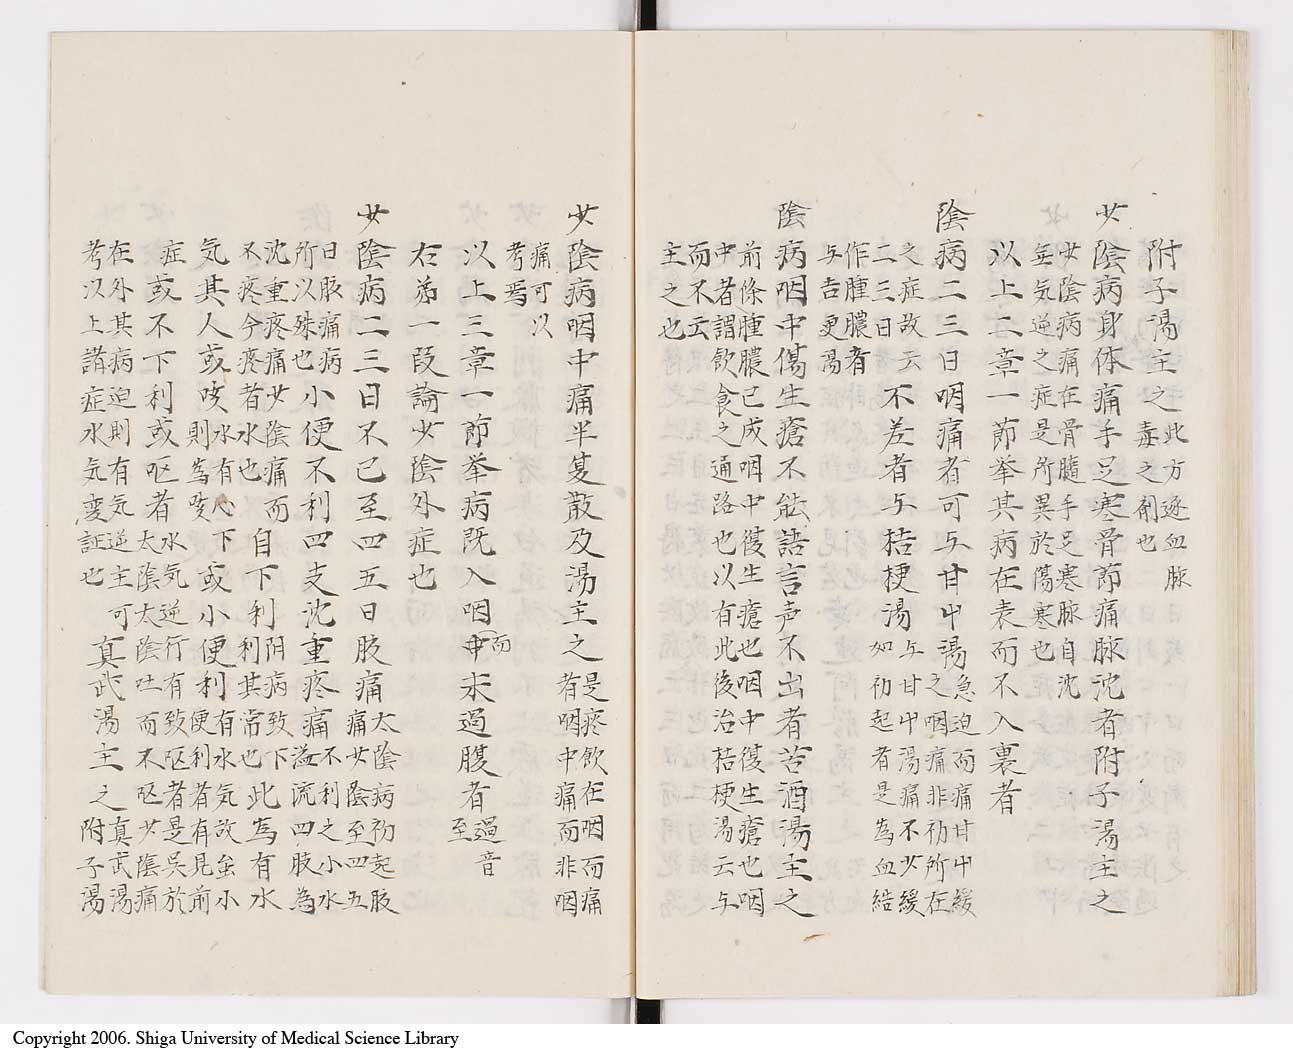 附子湯主之 此方逐血脈
毒之劑也
少陰病身体痛手足寒骨節痛脉沈者附子湯主之
少陰病痛在骨髓手足寒脉自沈
無気逆之症是所異於傷寒也
以上二章一節挙其病在表而不入裏者
陰病二三日咽痛者可与甘中湯 急迫而痛甘中緩
之咽痛非初所在
之症故云
二三日 不差者与桔梗湯 与甘中湯痛不少緩
如初起者是為血結
作腫膿者
与吉更湯
陰病咽中傷生瘡不能語言声不出者苦酒湯主之
前條腫膿已成咽中復生瘡也咽中復生瘡也咽
中者謂飲食之通路也以有此後治桔梗湯云与
而不云
主之也
少陰病咽中痛半夏散及湯主之 是疼飲在咽而痛
者咽中痛而非咽
痛可以
考焉
以上三章一節挙病既入咽而未過腹者 過音
至
右第一段論少陰外症也
少陰病二三日不已至四五日腹痛 太陰病初起腹
痛少陰至四五
日腹痛病
所以殊也 小便不利四支沈重疼痛 不利之小水
溢流四肢為
沈重疼痛少陰痛而
不疼今疼者水也 自下利 阴病致下
利其常也 此為有水
気其人或咳 水有心下
則為咳 或小便利 有水気故虽小
便利者有見前
症 或不下利或呕者 水気逆行有致呕者是吴於
太陰太陰吐而不呕少陰痛
在外其病迫則有気逆主可
考以上諸症水気変証也 真武湯主之 真武湯
附子湯